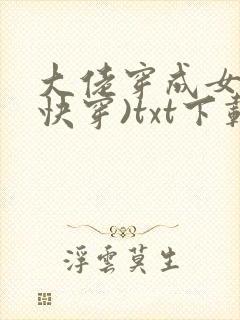 大佬穿成女
快穿)txt下载
浮雲莫生